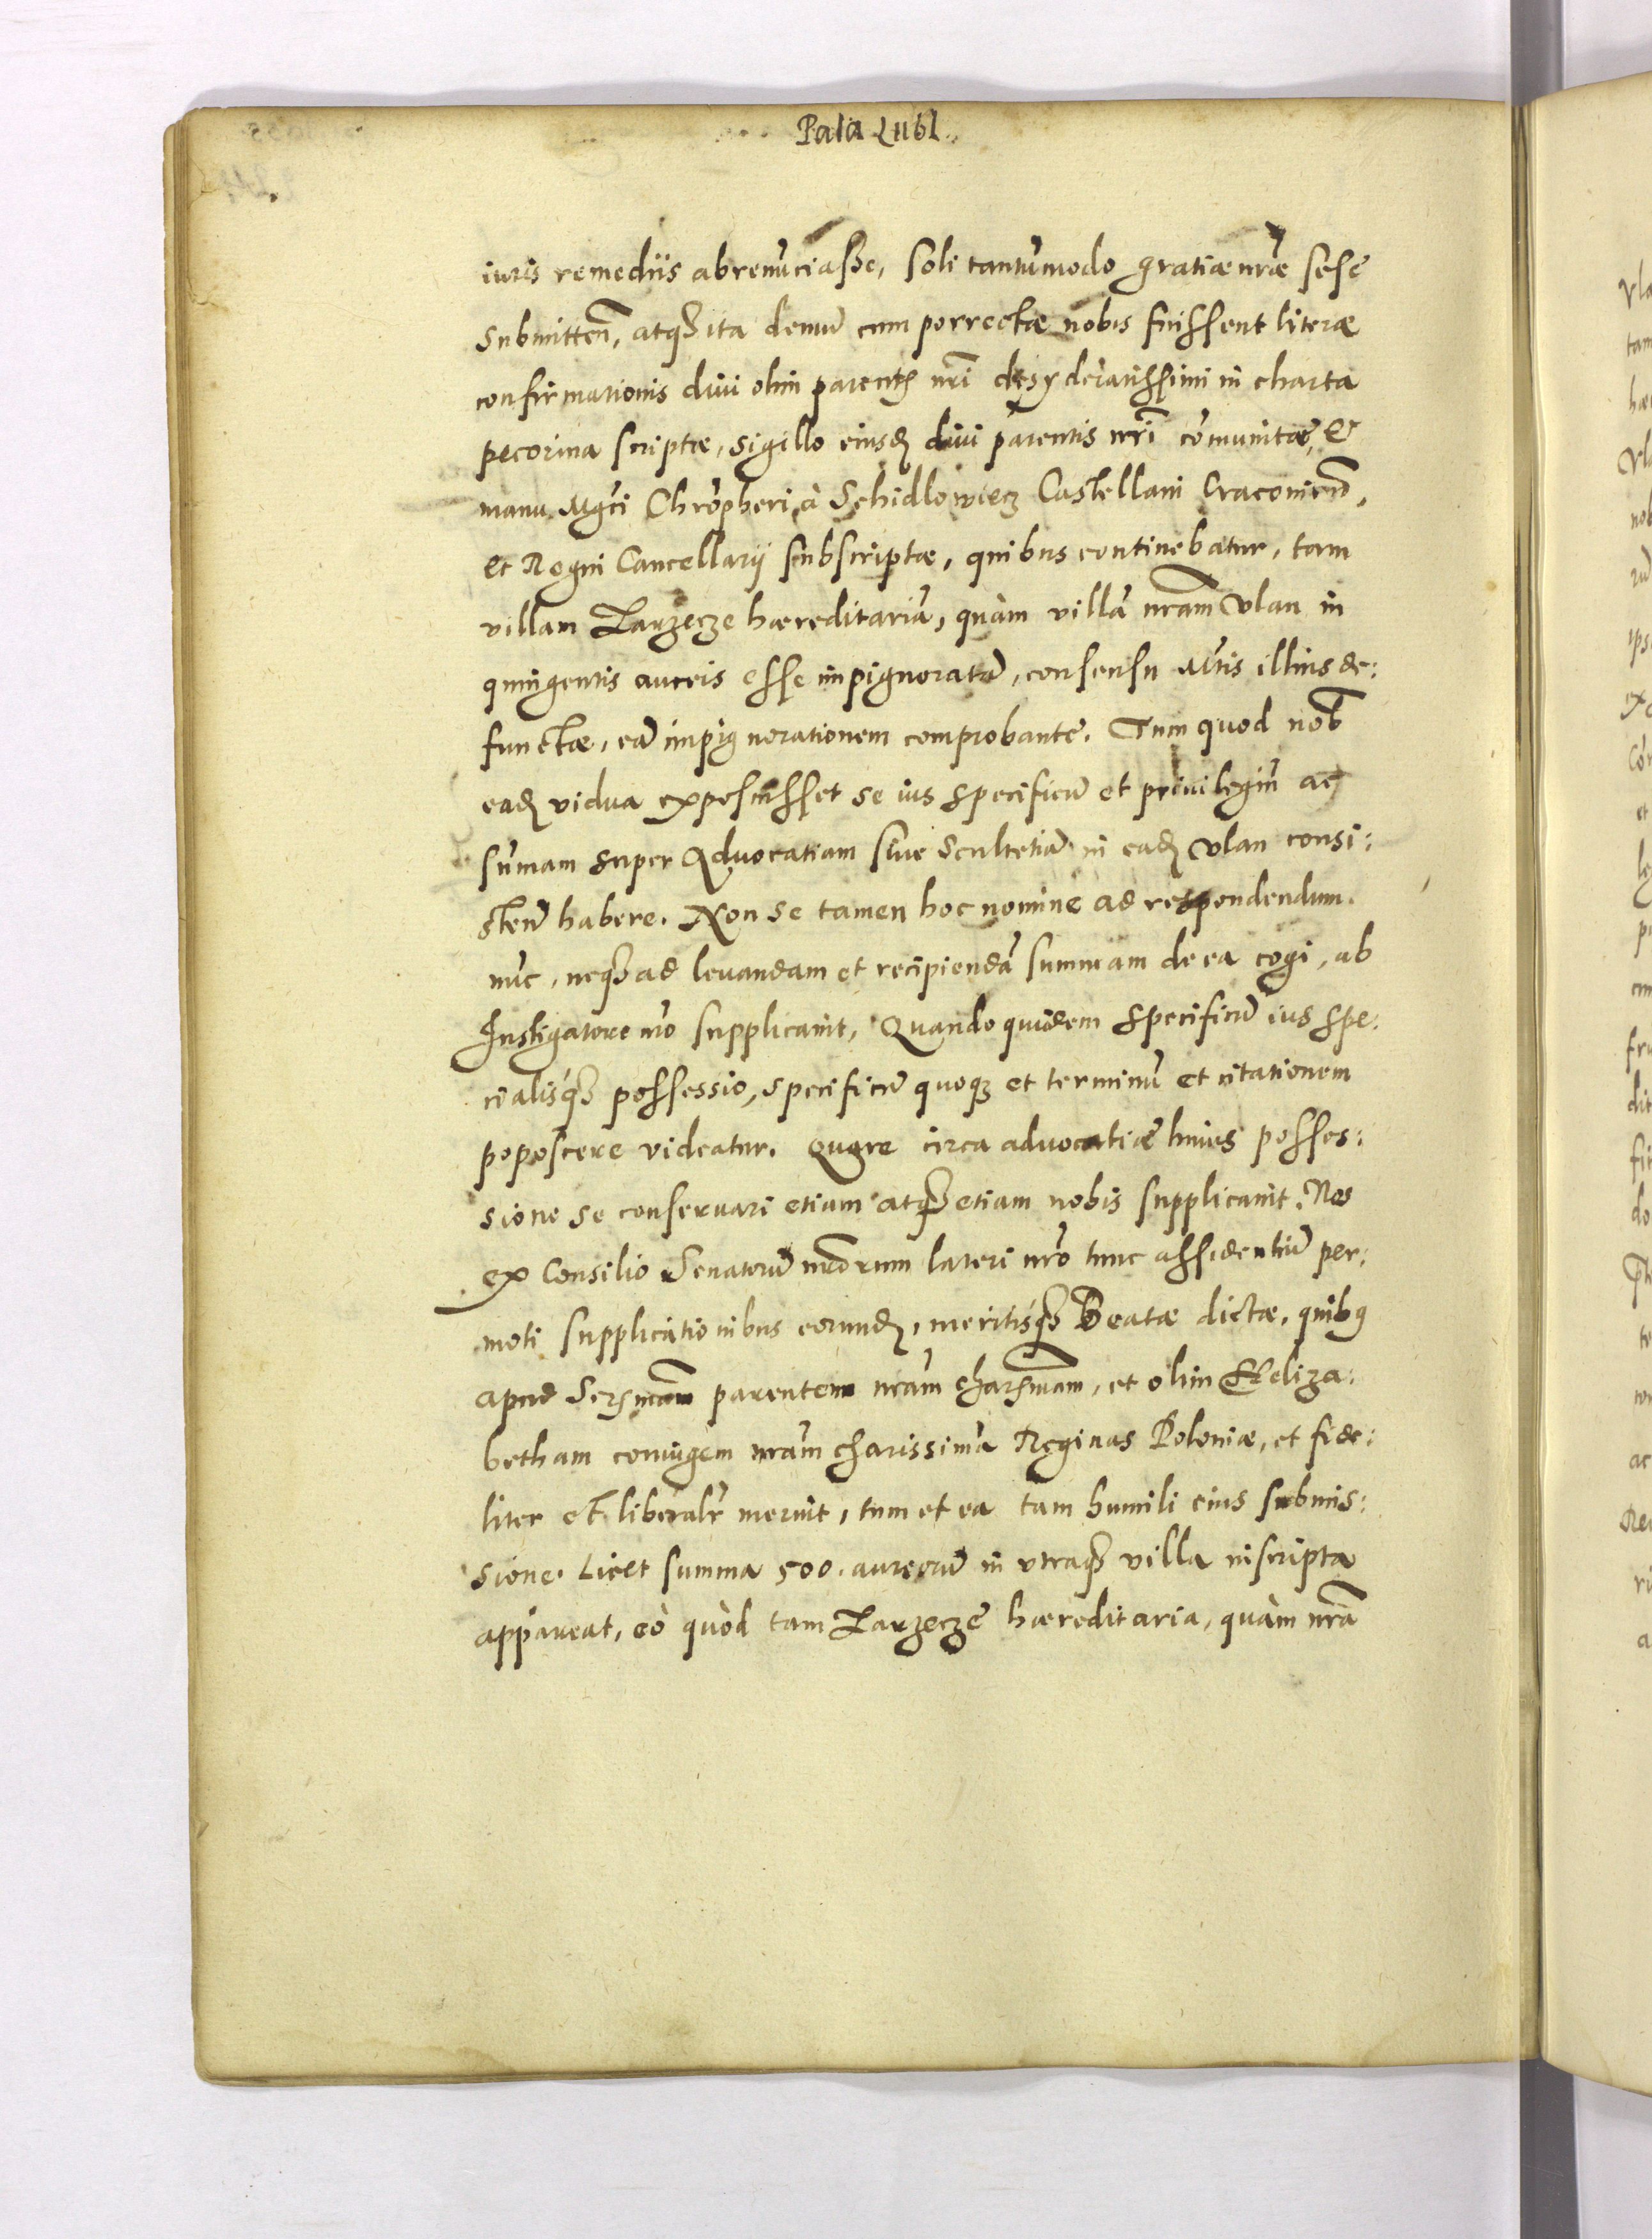 Pala Lubl.
iuris remediis abrenūciasse, soli tantūmodo gratiæ nr̃æ sese
submitteñ, atq̃ ita demū cum porrectæ nobis fuissent literæ
confirmationis diui olim parentis nr̃i desyderatissimi in charta
pecorina scriptæ, sigillo eiusdē diui parentis nr̃i cōmunitæ, &
manu Mgci Chrōpheri à Schidlowiecz Castellani Cracovieñ,
et Regni Cancellarij subscriptæ, quibus continebatur, tam
villam Zarzecze hæreditariā, quàm villā nr̃am Vlan in
quingentis aureis esse inpignoratā, consensu Mtis illius de:
functæ, eā impignorationem comprobante. Tum quod nob̄
eadē vidua exposuisset se ius specificū et priuilegiū ac
sūmam super Advocatiam siue Scultetiā in eadē Vlan consi:
stenē habere. Non se tamen hoc nomine ad respondendum
nūc, neq̃ ad leuandam et recipiendā summam de ea cogi, ab
Instigatore nr̃o supplicauit, Quandoquidem specificū ius spe:
cialisq̃ possessio, specificū quoqȝ et terminū et citationem
poposcere videatur. Quare circa advocatiæ huius posses:
sione se conseruari etiam atq̃ etiam nobis supplicauit. Nos
ex Consilio Senatorū nr̃orum lateri nr̃o tunc assidentiū per:
moti supplicationibus eorundē, meritisq̃ Beatæ dictæ, quibꝯ
apud Sersmam parentem nr̃am charsmam, et olim Heliza:
betham coniugem nr̃am charissimā Reginas Poloniæ, et fide:
liter et liberalr̃ meruit, tum et ea tam humili eius submis:
sione. Licet summa 500. aureorū in vtraq̃ villa inscripta
appareat, eò quòd tam Zarzecze hæreditaria, quàm nr̃a